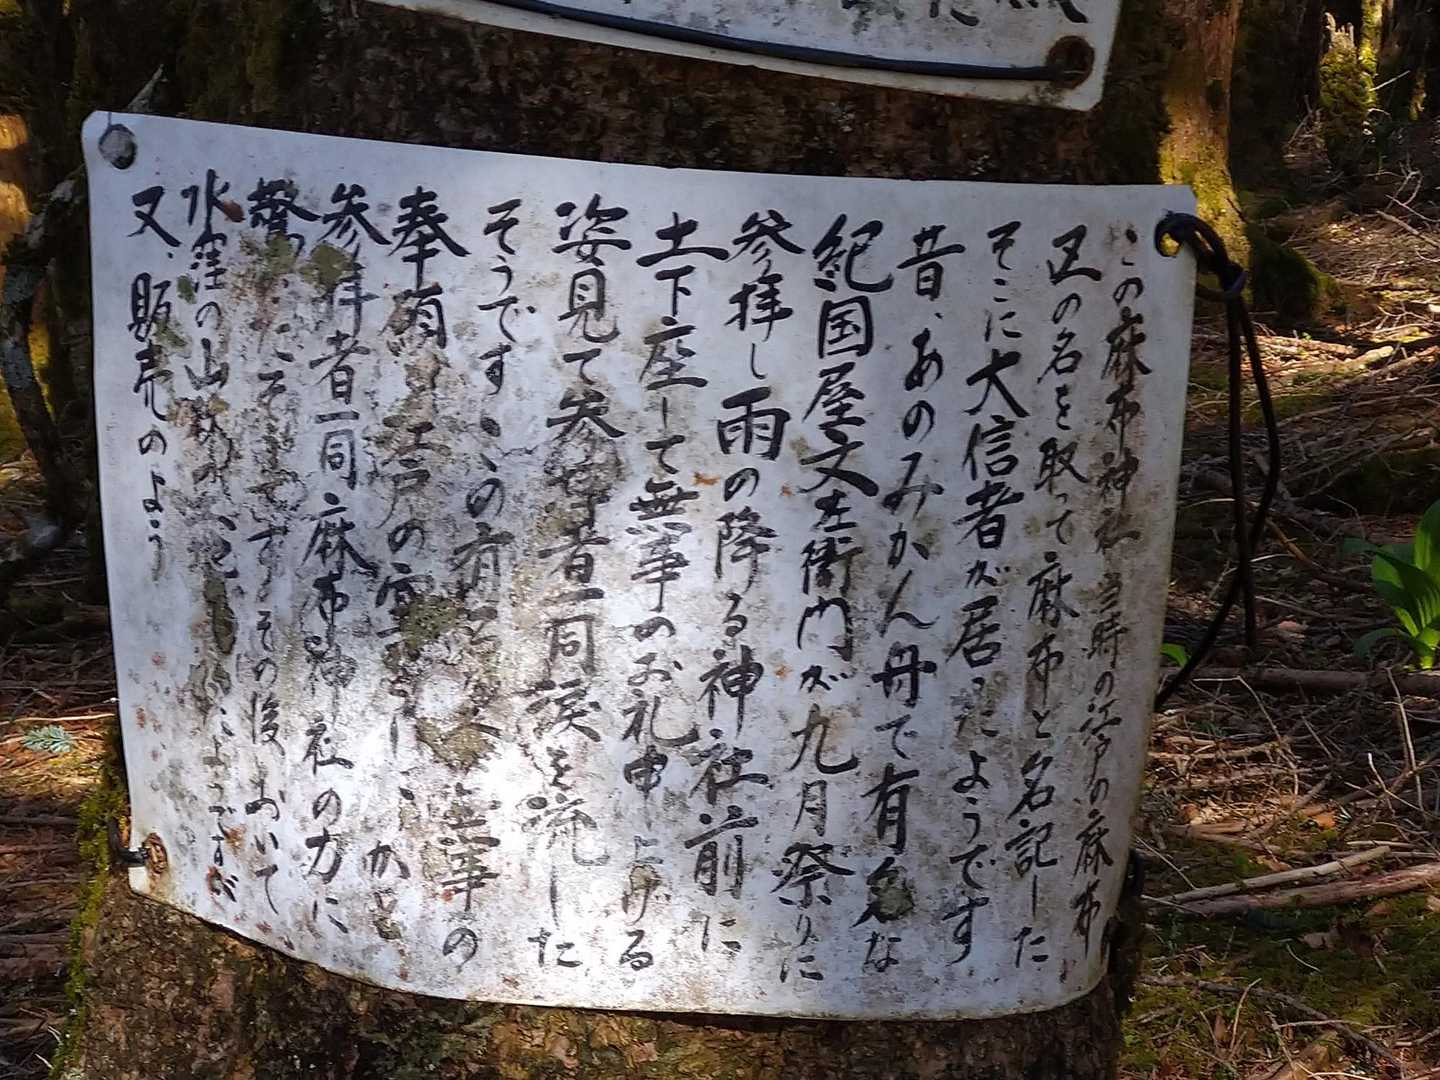 この麻布神社 当時の江戸の麻布
区の名を取って麻布と名記した
そこに大信者が居ったようです
昔、あのみかん舟で有名な
紀国屋文左衛門が九月祭りに
参拝し雨の降る神社前に
土下座して無事のお礼申上げる
姿見て参拝者一同涙を流した
そうです この有
無事の
奉願 江戸の
参拝者一同麻布神社の力に
驚いたそうですその後において
水窪の山
ようですが
又、販売のよう